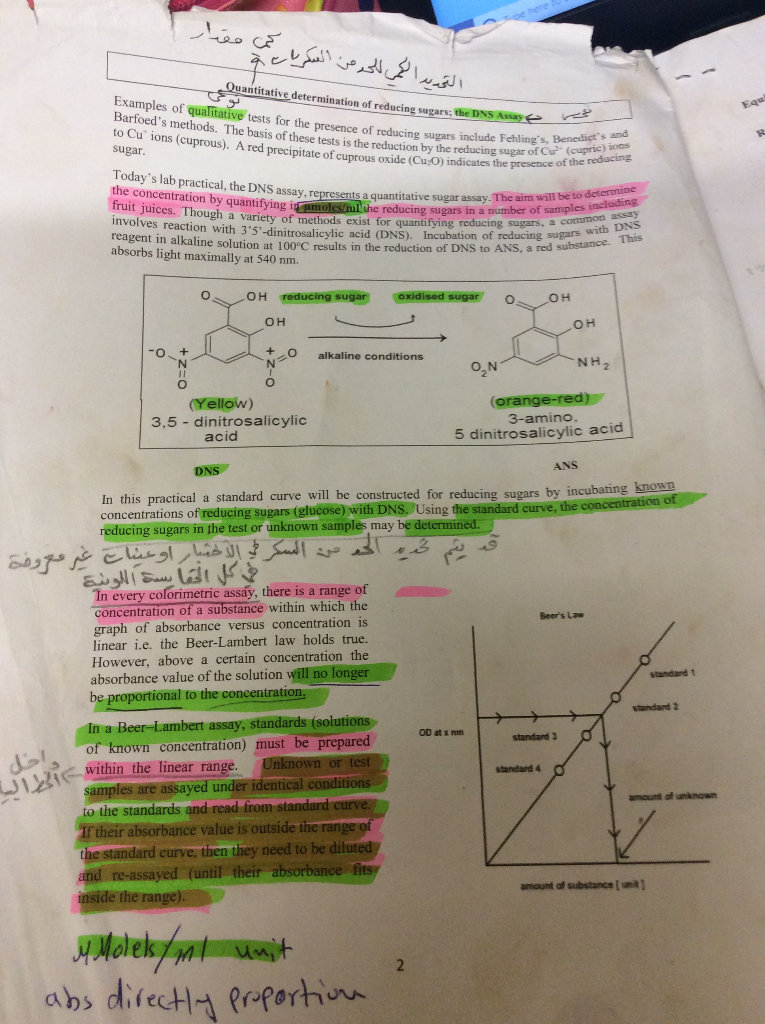 Type here to
كمي مقدار
التحديد الكمي للحد من السكريات
Quantitative determination of reducing sugars; the DNS Assay
نوعي
Examples of qualitative tests for the presence of reducing sugars include Fehling's, Benedict's and
Barfoed's methods. The basis of these tests is the reduction by the reducing sugar of Cu²⁺ (cupric) ions
to Cu⁺ ions (cuprous). A red precipitate of cuprous oxide (Cu₂O) indicates the presence of the reducing
sugar.
Today's lab practical, the DNS assay, represents a quantitative sugar assay. The aim will be to determine
the concentration by quantifying in µmoles/ml the reducing sugars in a number of samples including
fruit juices. Though a variety of methods exist for quantifying reducing sugars, a common assay
involves reaction with 3'5'-dinitrosalicylic acid (DNS). Incubation of reducing sugars with DNS
reagent in alkaline solution at 100°C results in the reduction of DNS to ANS, a red substance. This
absorbs light maximally at 540 nm.
O OH reducing sugar oxidised sugar O OH
OH OH
alkaline conditions
⁻O N⁺ O N⁺ O O O₂N NH₂
(Yellow) (orange-red)
3,5 - dinitrosalicylic acid
3-amino,
5 dinitrosalicylic acid
DNS ANS
In this practical a standard curve will be constructed for reducing sugars by incubating known
concentrations of reducing sugars (glucose) with DNS. Using the standard curve, the concentration of
reducing sugars in the test or unknown samples may be determined.
قد يتم تحديد الحد من السكر في الاختبار او عينات غير معروفة
في كل المقايسة اللونية
In every colorimetric assay, there is a range of
concentration of a substance within which the
graph of absorbance versus concentration is
linear i.e. the Beer-Lambert law holds true.
However, above a certain concentration the
absorbance value of the solution will no longer
be proportional to the concentration.
In a Beer–Lambert assay, standards (solutions
of known concentration) must be prepared
within the linear range. Unknown or test
samples are assayed under identical conditions
to the standards and read from standard curve.
If their absorbance value is outside the range of
the standard curve, then they need to be diluted
and re-assayed (until their absorbance fits
inside the range).
داخل
Beer's Law
standard 1
standard 2
OD at x nm
standard 3
standard 4
amount of unknown
amount of substance [ unit ]
µMolek/ml unit
2
abs directly proportion
Equi
R